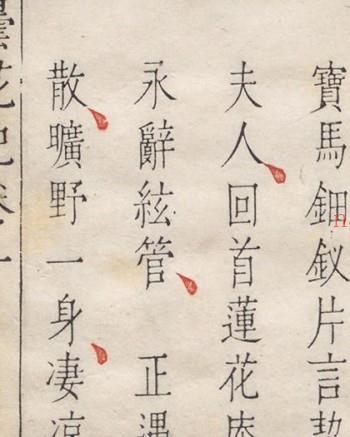 寶馬鈿釵片言
夫人回首蓮花
永辭絃管 正遇
散曠野一身凄凉
曇花記卷